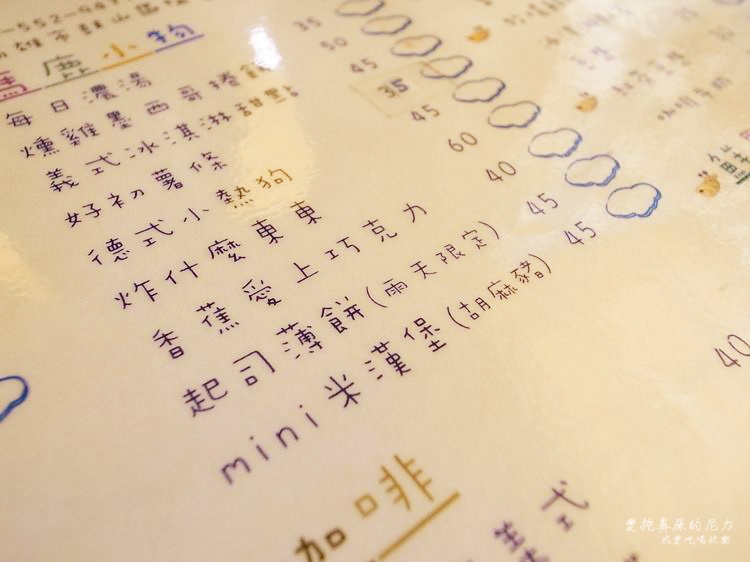 -552-947
雄市鼓山區
鹿小物
每日濃湯 35
燻雞墨西哥捲餅 50
義式冰淇淋甜點 45
好初薯條 35
德式小熱狗 45
炸什麼東東 60
香蕉愛上巧克力 40
起司薄餅(雨天限定) 45
mini米漢堡(胡麻豬) 45
40
咖啡
義式
愛挖鼻屎的尼力